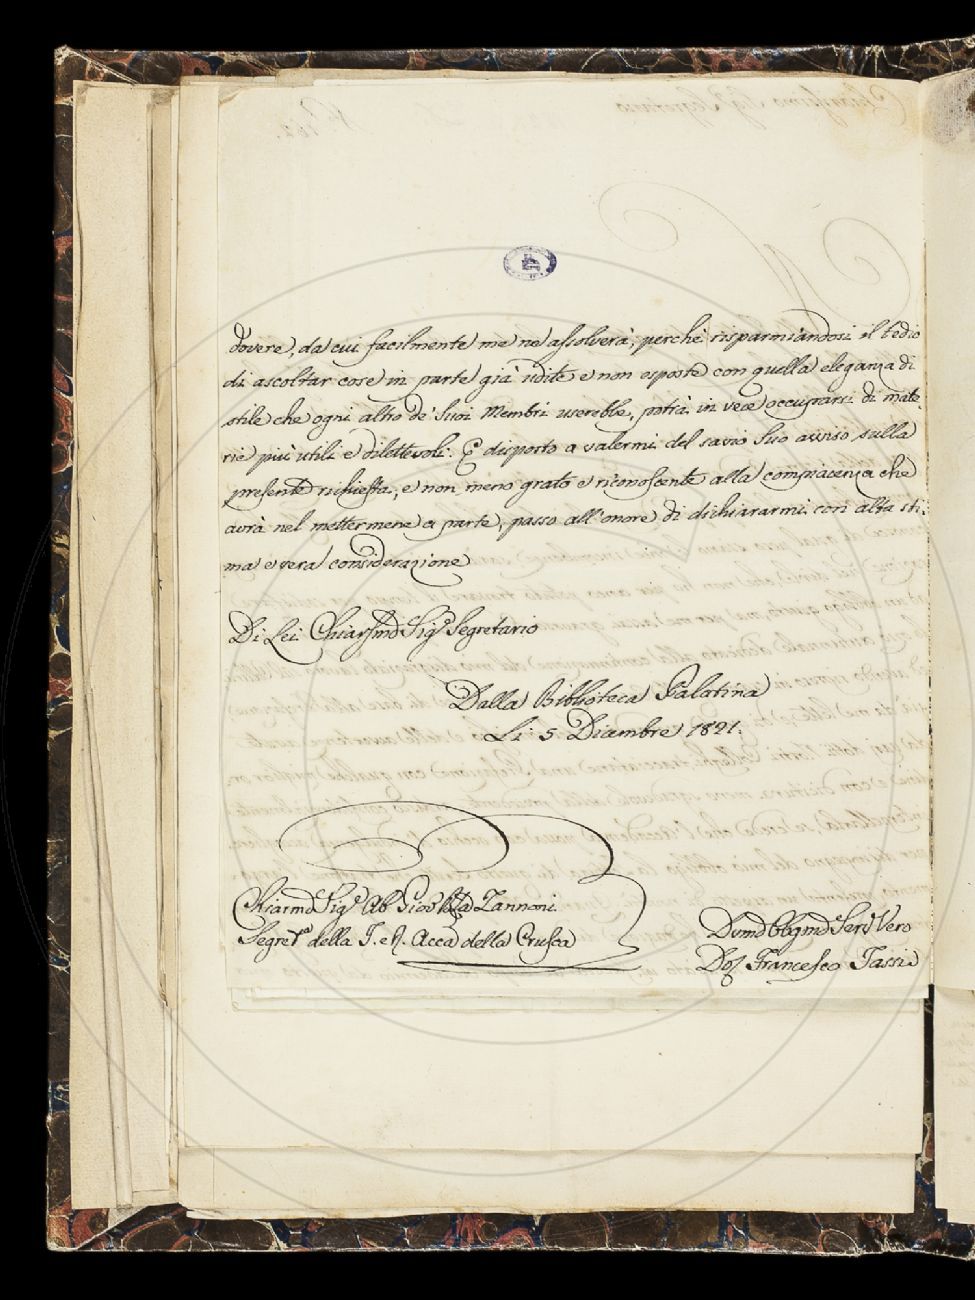 dovere, da cui facilmente me ne assolverà; perchè risparmiandosi il tedio
di ascoltar cose in parte già udite e non esposte con quella eleganza di
stile che ogni altro de' suoi Membri userebbe, potrà in vece occuparsi di mate-
rie più utili e dilettevoli. E disposto a valermi del savio Suo avviso sulla
presente richiesta, e non meno grato e riconoscente alla compiacenza che
avrà nel mettermene a parte, passo all'onore di dichiararmi con alta sti-
ma e vera considerazione
Di Lei Chiarmo Sigr Segretario
Dalla Biblioteca Palatina
Li 5 Dicembre 1821.
Chiarmo Sigr Ab Giov Bta Zannoni
Segreto della I. e R. Accad della Crusca
Dvmo Obbgmo Serv Vero
Dor Francesco Tassi